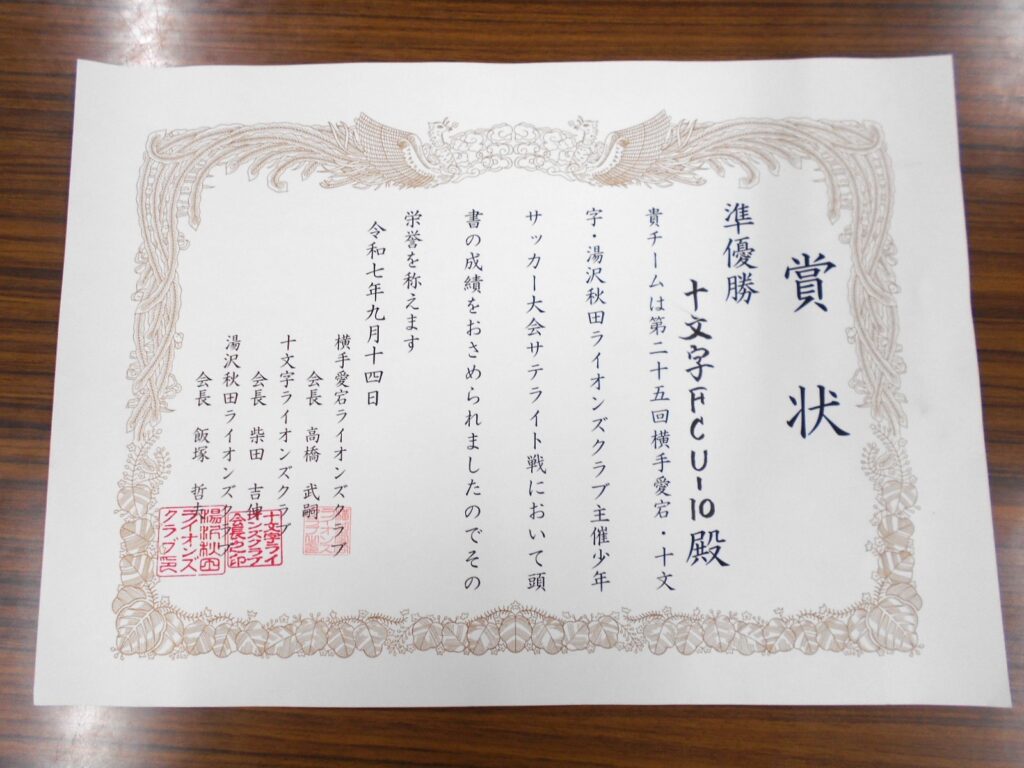 賞状
準優勝
十文字FCU-10殿
貴チームは第二十五回横手愛宕・十文
字・湯沢秋田ライオンズクラブ主催少年
サッカー大会サテライト戦において頭
書の成績をおさめられましたのでその
栄誉を称えます
令和七年九月十四日
横手愛宕ライオンズクラブ
会長 高橋 武嗣
十文字ライオンズクラブ
会長 柴田 吉伸
湯沢秋田ライオンズクラブ
会長 飯塚 哲
十文字ライ
オンズクラブ
会長之印
湯沢秋田
ライオンズ
クラブ